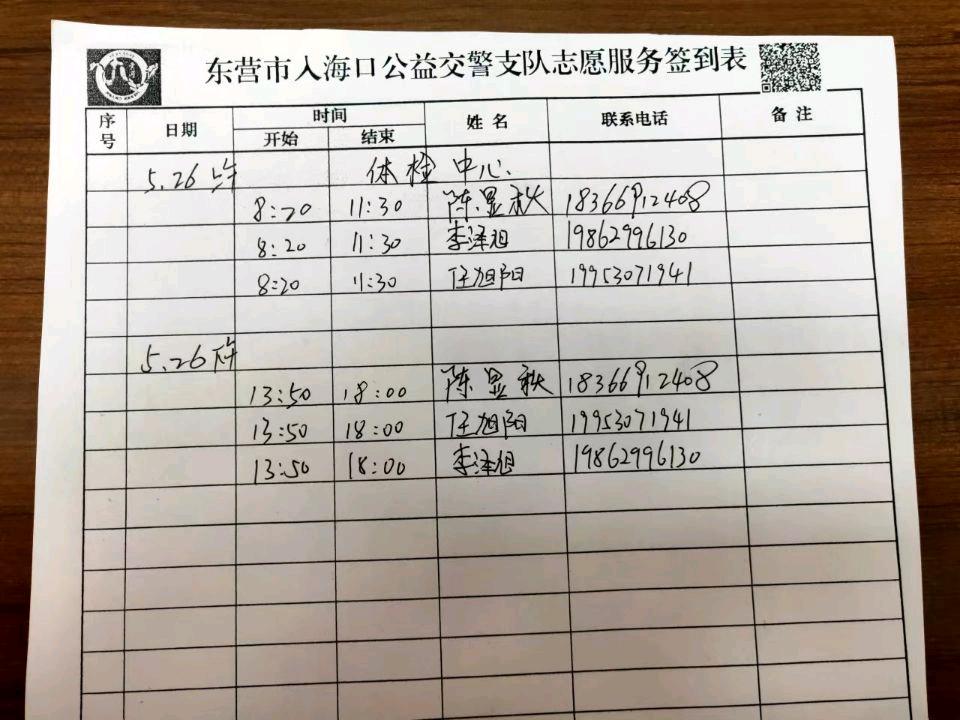 东营市入海口公益交警支队志愿服务签到表
序号 日期 时间 姓名 联系电话 备注
开始 结束
5.26 上午 体检中心
8:20 11:30 陈显秋 18366912408
8:20 11:30 李泽旭 19862996130
8:20 11:30 任旭阳 19953071941
5.26 下午
13:50 18:00 陈显秋 18366912408
13:50 18:00 任旭阳 19953071941
13:50 18:00 李泽旭 19862996130